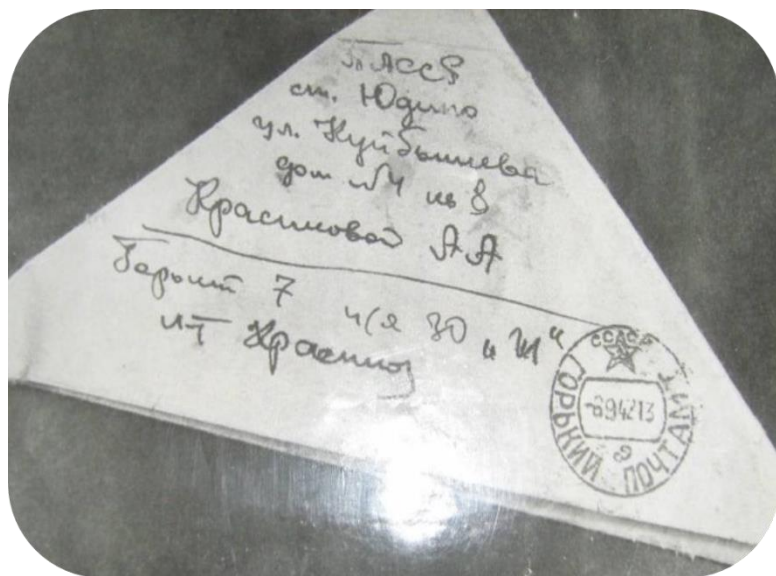 ТАССР
ст. Юдино
ул. Куйбышева
дом №4 кв 8
Красиковой АА
Горький 7 п/я 30 "Ш"
Красиков
СССР
ГОРЬКИЙ ПОЧТАМТ
-694213